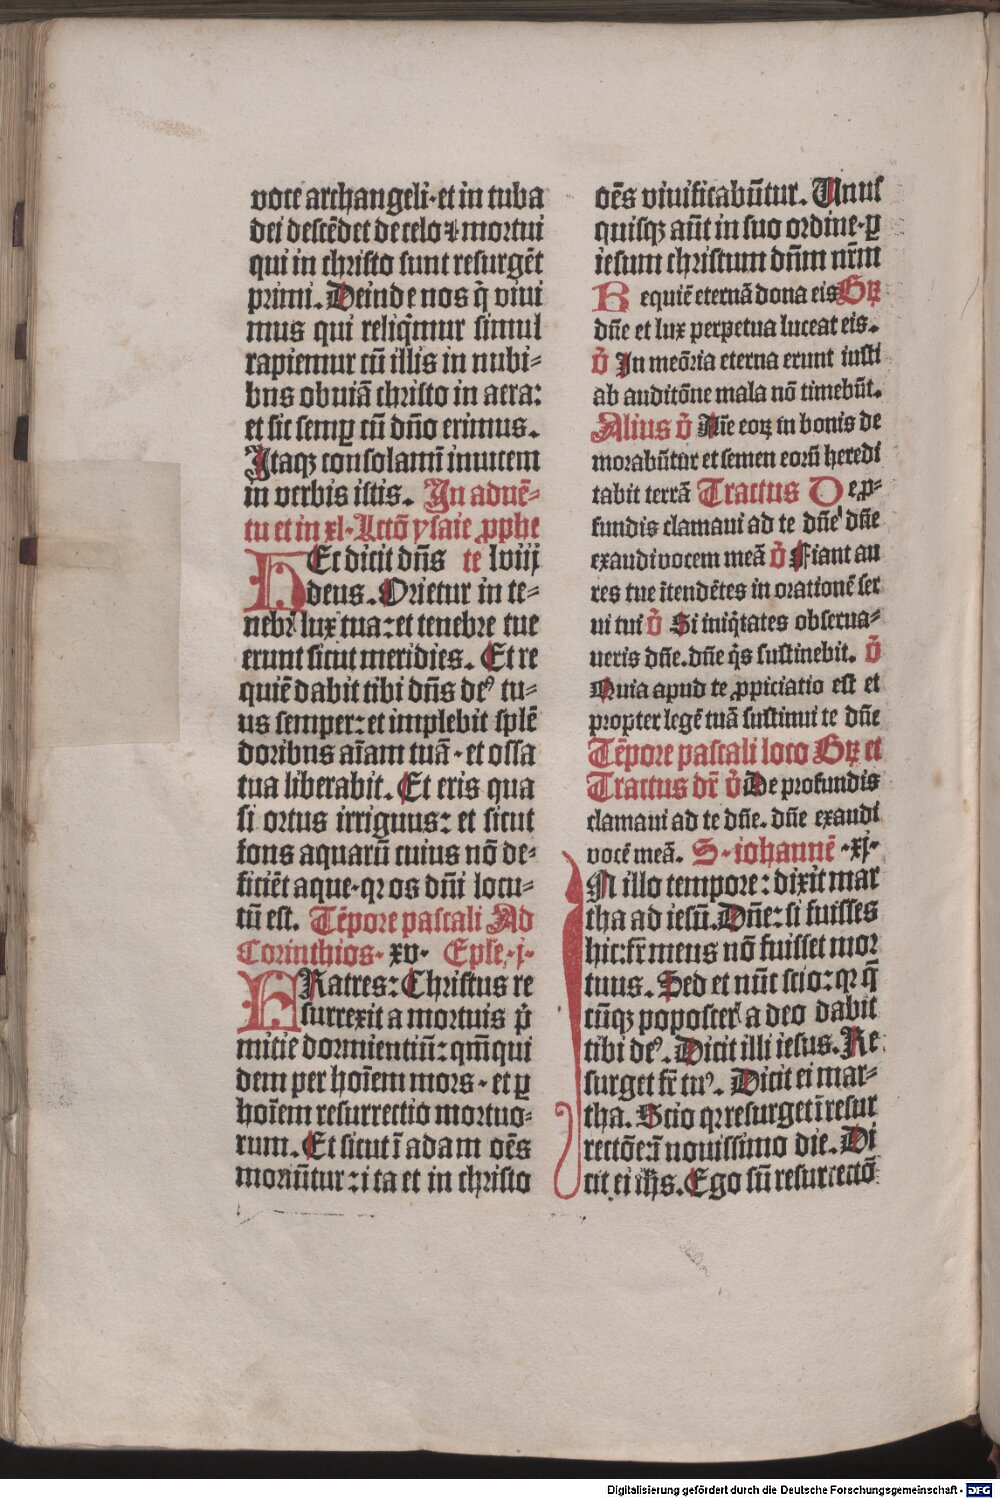 voce archangeli·et in tuba
dei descēdet de celo ⁊ mortui
qui in christo sunt resurgēt
primi. Deinde nos q̇ viui
mus qui reliq̇mur simul
rapiemur cū illis in nubi⸗
bus obuiā christo in aera:
et sic semꝑ cū dn̄o erimus.
Itaqꝫ consolamī inuicem
in verbis istis. In aduē⸗
tu et in xl· Lctō ysaie ꝓphe
HEc dicit dn̄s te lviij
deus. Orietur in te⸗
nebrꝭ lux tua: et tenebre tue
erunt sicut meridies. Et re
quiē dabit tibi dn̄s deꝰ tu⸗
us semper: et implebit splē
doribus aīam tuā · et ossa
tua liberabit. Et eris qua
si ortus irriguus: et sicut
fons aquarū cuius nō de⸗
ficiēt aque·qꝛ os dn̄i locu⸗
tū est. Tēpore pascali Ad
Corinthios· xv· Epſe·j·
FRatres: Christus re
surrexit a mortuis p̄
mitie dormientiū: qm̄ qui
dem per hoīem mors · et ꝑ
hoīem resurrectio mortuo⸗
rum. Et sicut ī adam oēs
moriūtur: ita et in christo
oēs viuificabūtur. Unus
quisqꝫ aūt in suo ordine·ꝑ
iesum christum dn̄m nr̄m
Requiē eternā dona eis Gꝛꝫ
dn̄e et lux perpetua luceat eis.
v̇ In meōria eterna erunt iusti
ab auditōne mala nō timebūt.
Alius v̇ Aīe eoꝝ in bonis de
morabūtur et semen eorū heredi
tabit terrā Tractus De ꝓ⸗
fundis clamaui ad te dn̄e dn̄e
exaudi vocem meā v̇ Fiant au
res tue ītendētes in orationē ser
ui tui v̇ Si iniq̇tates obserua⸗
ueris dn̄e. dn̄e q̇s sustinebit. v̇
Quia apud te ꝓpiciatio est et
propter legē tuā sustinui te dn̄e
Tēpore pascali loco Gꝛꝫ et
Tractus dr̄ v̇ De profundis
clamaui ad te dn̄e. dn̄e exaudi
vocē meā. S· iohannē ·xj·
IN illo tempore: dixit mar
tha ad iesū. Dn̄e: si fuisses
hic: fr̄ meus nō fuisset mor
tuus. Sed et nūc scio: qꝛ q̄
cūqꝫ poposcerꝭ a deo dabit
tibi deꝰ. Dicit illi iesus. Re
surget fr̄ tuꝰ. Dicit ei mar⸗
tha. Scio qꝛ resurget ī resur
rectōe: ī nouissimo die. Di
cit ei ih̄s. Ego sū resurrectō
Digitalisierung gefördert durch die Deutsche Forschungsgemeinschaft - DFG